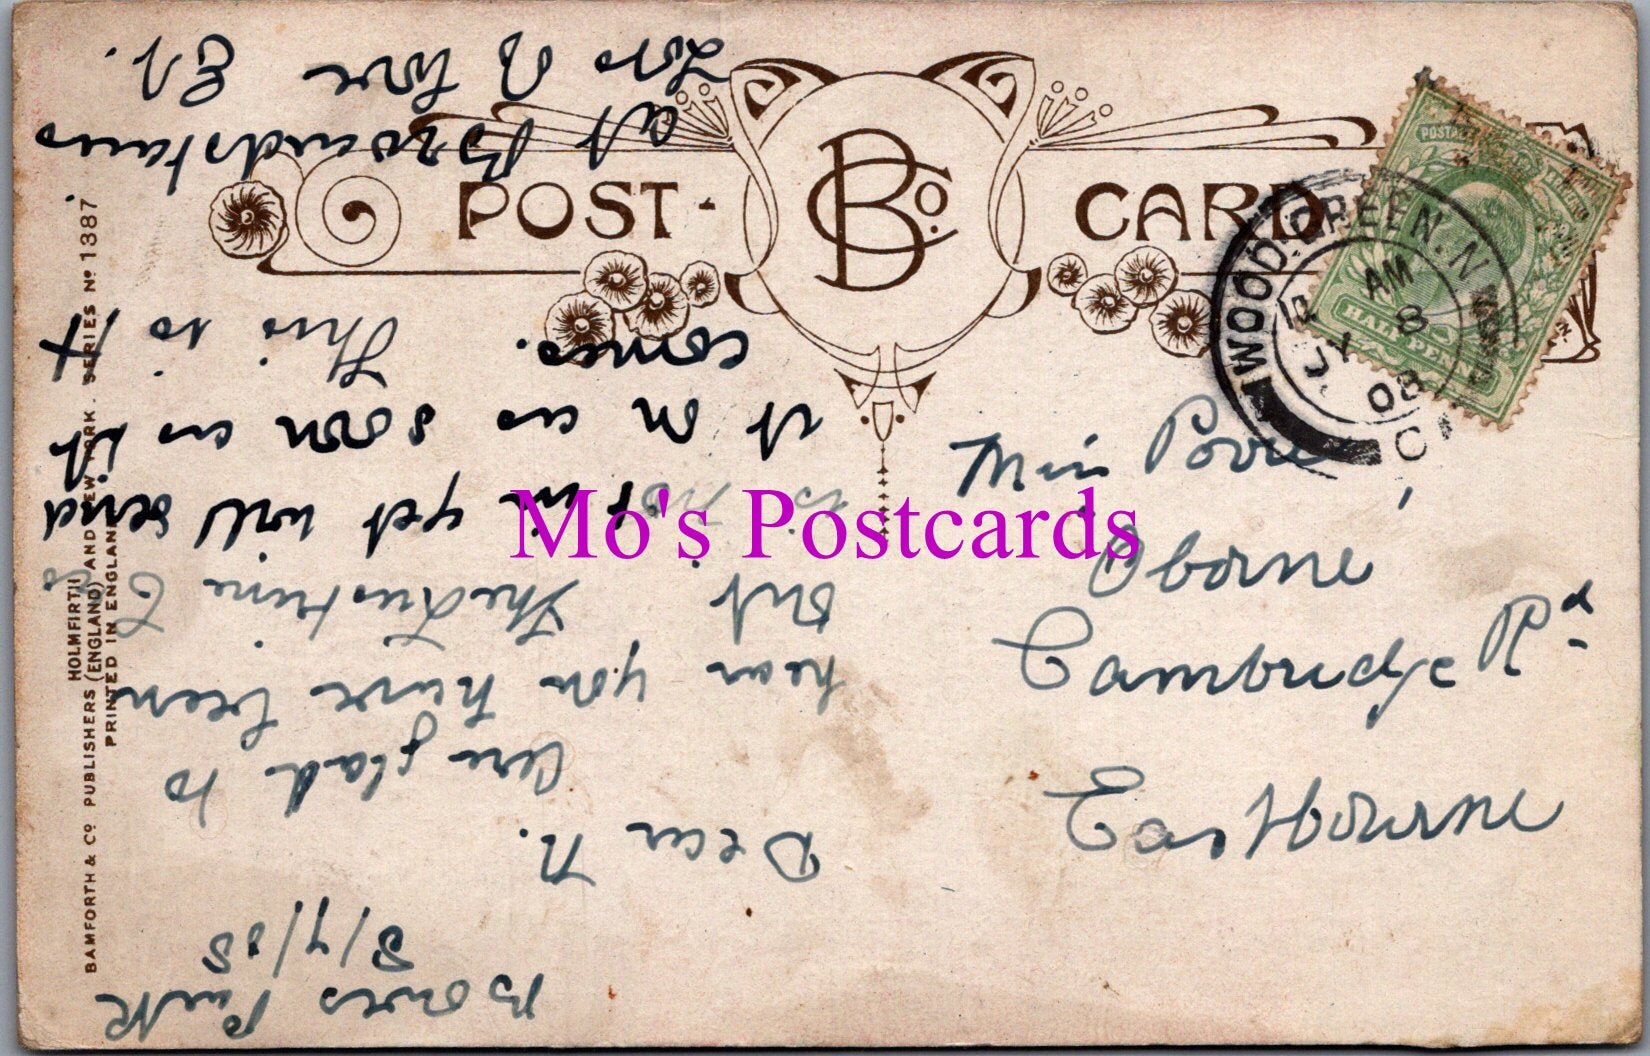 POST-CARD
BCo.
WOOD-GREEN. N
AM
JY 8
08
POSTAGE
HALF PENNY
Miss Poore
Oborne
Cambridge Rd
Eastbourne
Bowes Park
8/7/08
Dear N.
Are glad to
hear you have been
out
is not in yet will send
it on as soon as it
comes. This is H
at Broadstairs
Love
BAMFORTH & Co. PUBLISHERS (ENGLAND) AND NEW YORK. SERIES No 1387
HOLMFIRTH
PRINTED IN ENGLAND
Mo's Postcards